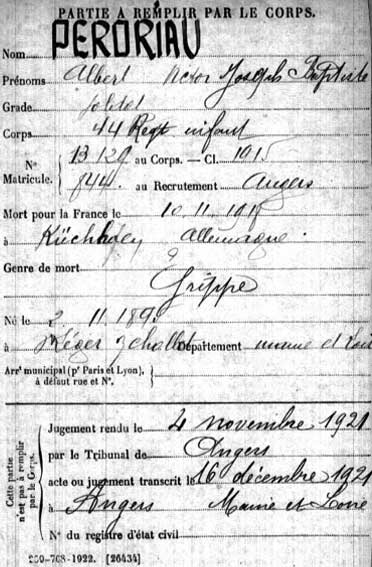 PARTIE À REMPLIR PAR LE CORPS.
Nom PERDRIAU
Prénoms Albert Victor Joseph Baptiste
Grade soldat
Corps 44 Regt infant
N° Matricule. { 13129 au Corps. — Cl. 1915
844. au Recrutement Angers
Mort pour la France le 10.11.1918
à Allemagne.
Genre de mort
Grippe
Né le 2 11.189
à Département maine et Loire
Arrt municipal (pr Paris et Lyon), à défaut rue et N°.
Cette partie n'est pas à remplir par le Corps.
Jugement rendu le 4 novembre 1921
par le Tribunal de Angers
acte ou jugement transcrit le 16 décembre 1921
à Angers Maine et Loire
N° du registre d'état civil
[26434]